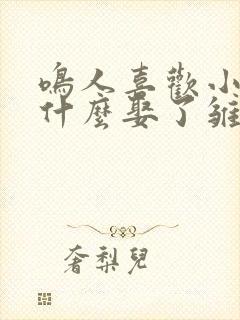 鳴人喜歡小
什麼娶了雛
奢梨兒